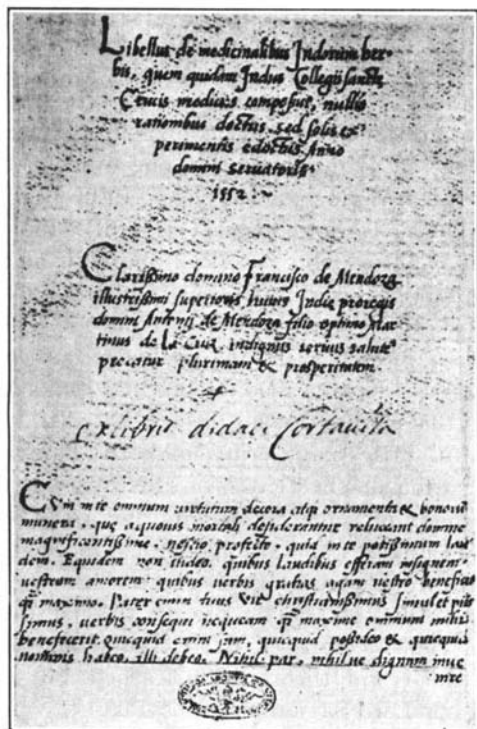 Libellus de medicinalibus Indorum her-
bis, quem quidam Indus Collegii sancte
Crucis medicus composuit, nullis
rationibus doctus, sed solis ex-
perimentis edoctus. Anno
domini servatoris
1552
Clarissimo domino Francisco de Mendoza
illustrissimi superioris huius Indie proregis
domini Antonij de Mendoza filio optimo Mar
tinus de la Cruz indignus servus salutē
precatur plurimam & prosperitatem
+
ex libris didaci Cortavila
Cum in te omnium virtutum decora atqꝫ ornamenta & bonorū
munera, que a quovis mortali desiderantur reluceant domine
magnificentissime, nescio profecto, quid in te potissimum lau
dem. Equidem non video, quibus laudibus efferam insignem
vestrum amorem: quibus verbis gratias agam vestro beneficio
maximo. Pater enim tuus vir christianissimus simulet piis
simus, verbis consequi nequeam maxime omnium mihi
benefecerit. quicquid enim sum, quicquid possideo & quicquid
nominis habeo, illi debeo. Nihil par, nihil ve dignum inve
nire